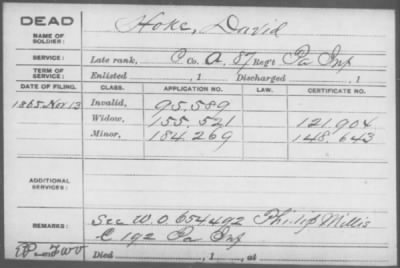 DEAD
NAME OF SOLDIER: Hoke, David
SERVICE: Late rank, Co. A, 87 Reg't Pa Inf
TERM OF SERVICE: Enlisted , 1 Discharged , 1
DATE OF FILING. CLASS. APPLICATION NO. LAW. CERTIFICATE NO.
1865 Nov 13 Invalid, 95.589
Widow, 155.521 121.904
Minor, 184.269 148.643
ADDITIONAL SERVICES:
REMARKS: See W.O 654492 Philip Millis
C 192 Pa Inf
Died , 1 , at